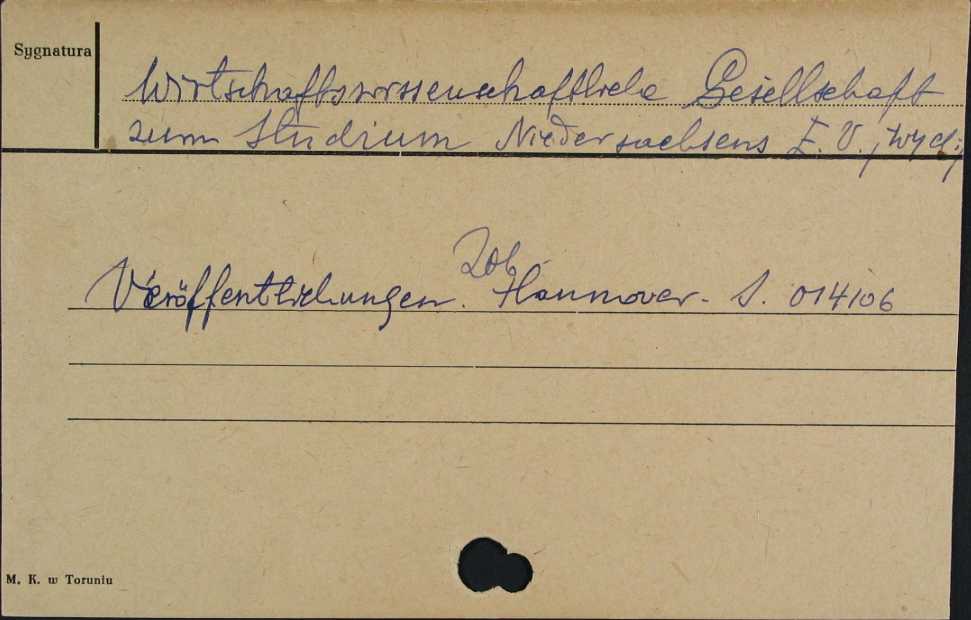 Sygnatura
Wirtschaftswissenschaftliche Gesellschaft
zum Studium Niedersachsens E. V., wyd.;
Zob.
Veröffentlichungen. Hannover. S. 014106
M. K. w Toruniu